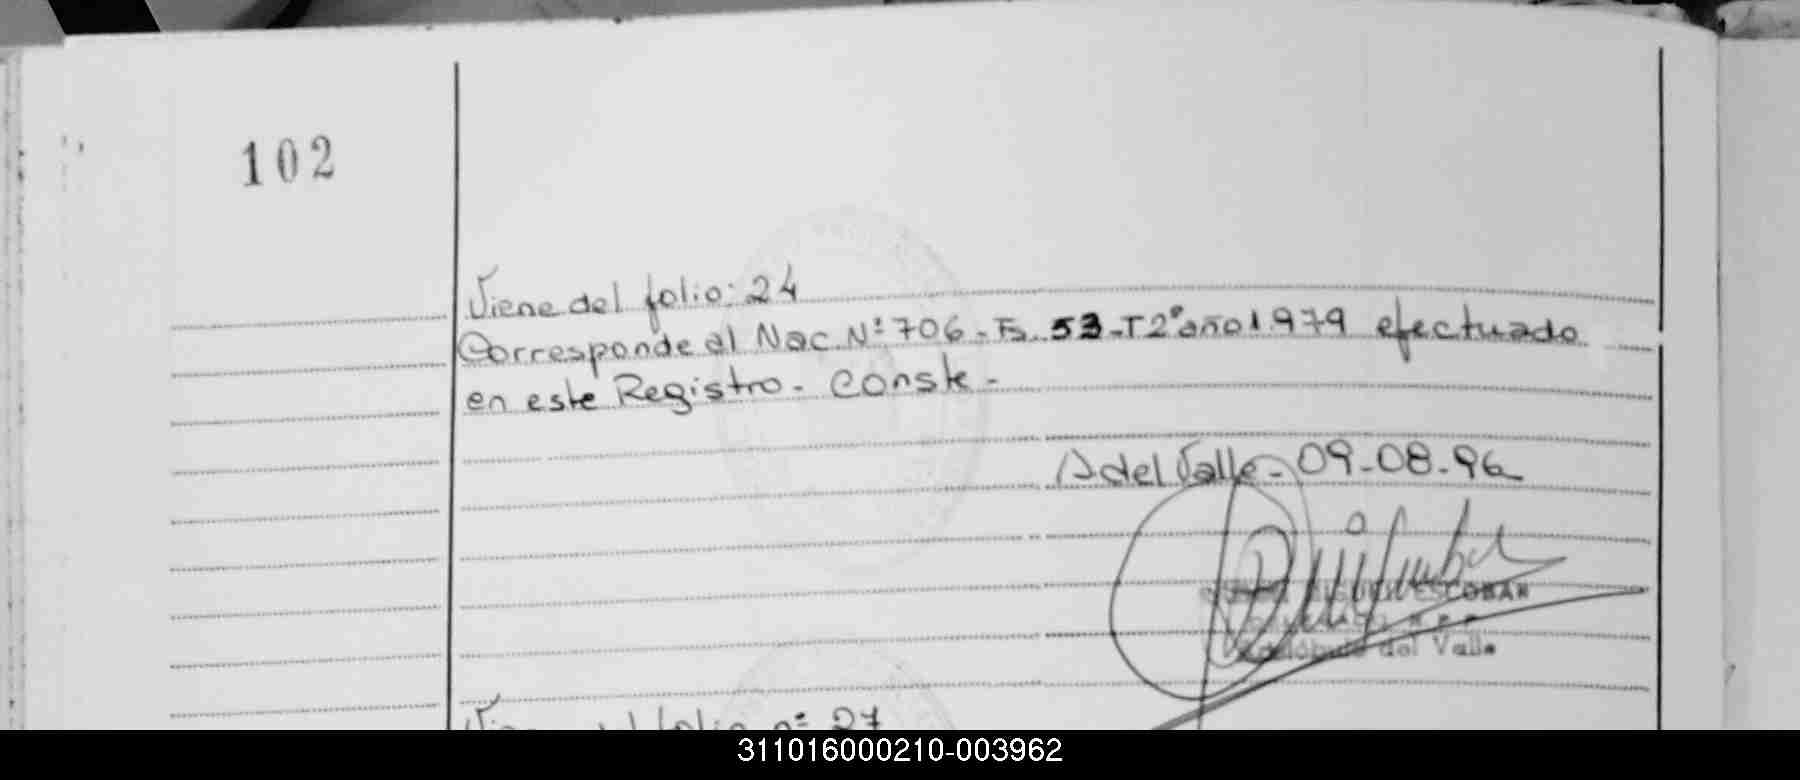 102
Viene del folio: 24
Corresponde al Nac. Nº 706 - Fs. 53 - T2º año 1.979 efectuado
en este Registro - Conste -
A del Valle - 09-08-96
ESCOBAR
del Valle
folio nº 27
311016000210-003962